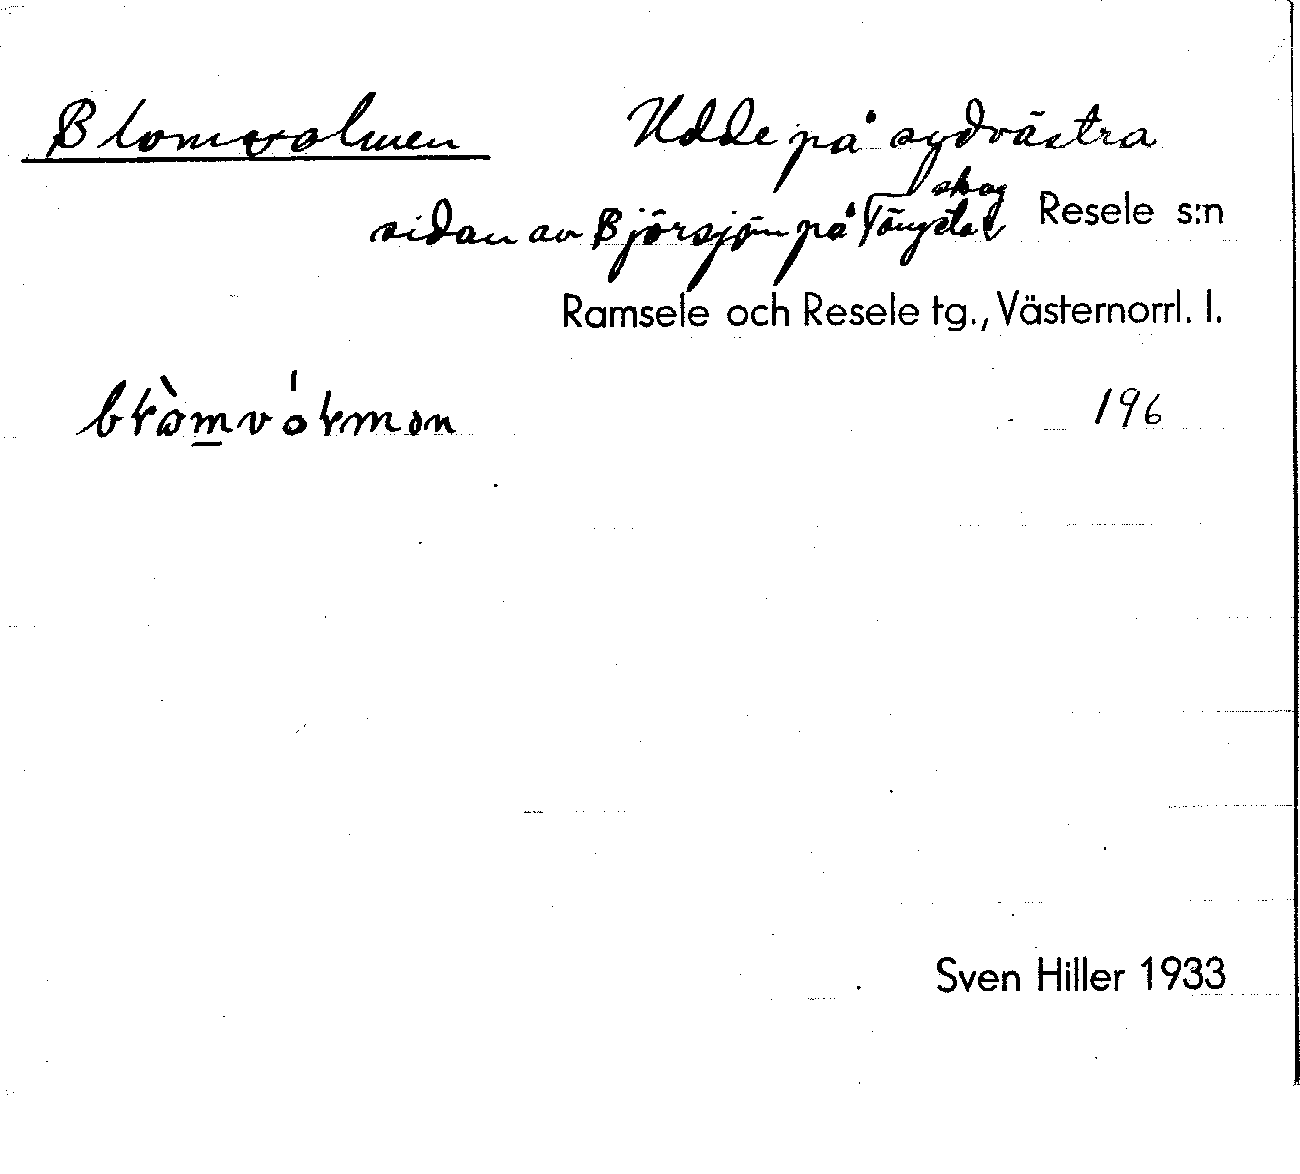 Blomvalmen Udde på sydvästra
sidan av Björsjön på Tängsta skog Resele s:n
Ramsele och Resele tg., Västernorrl. l.
196
Sven Hiller 1933